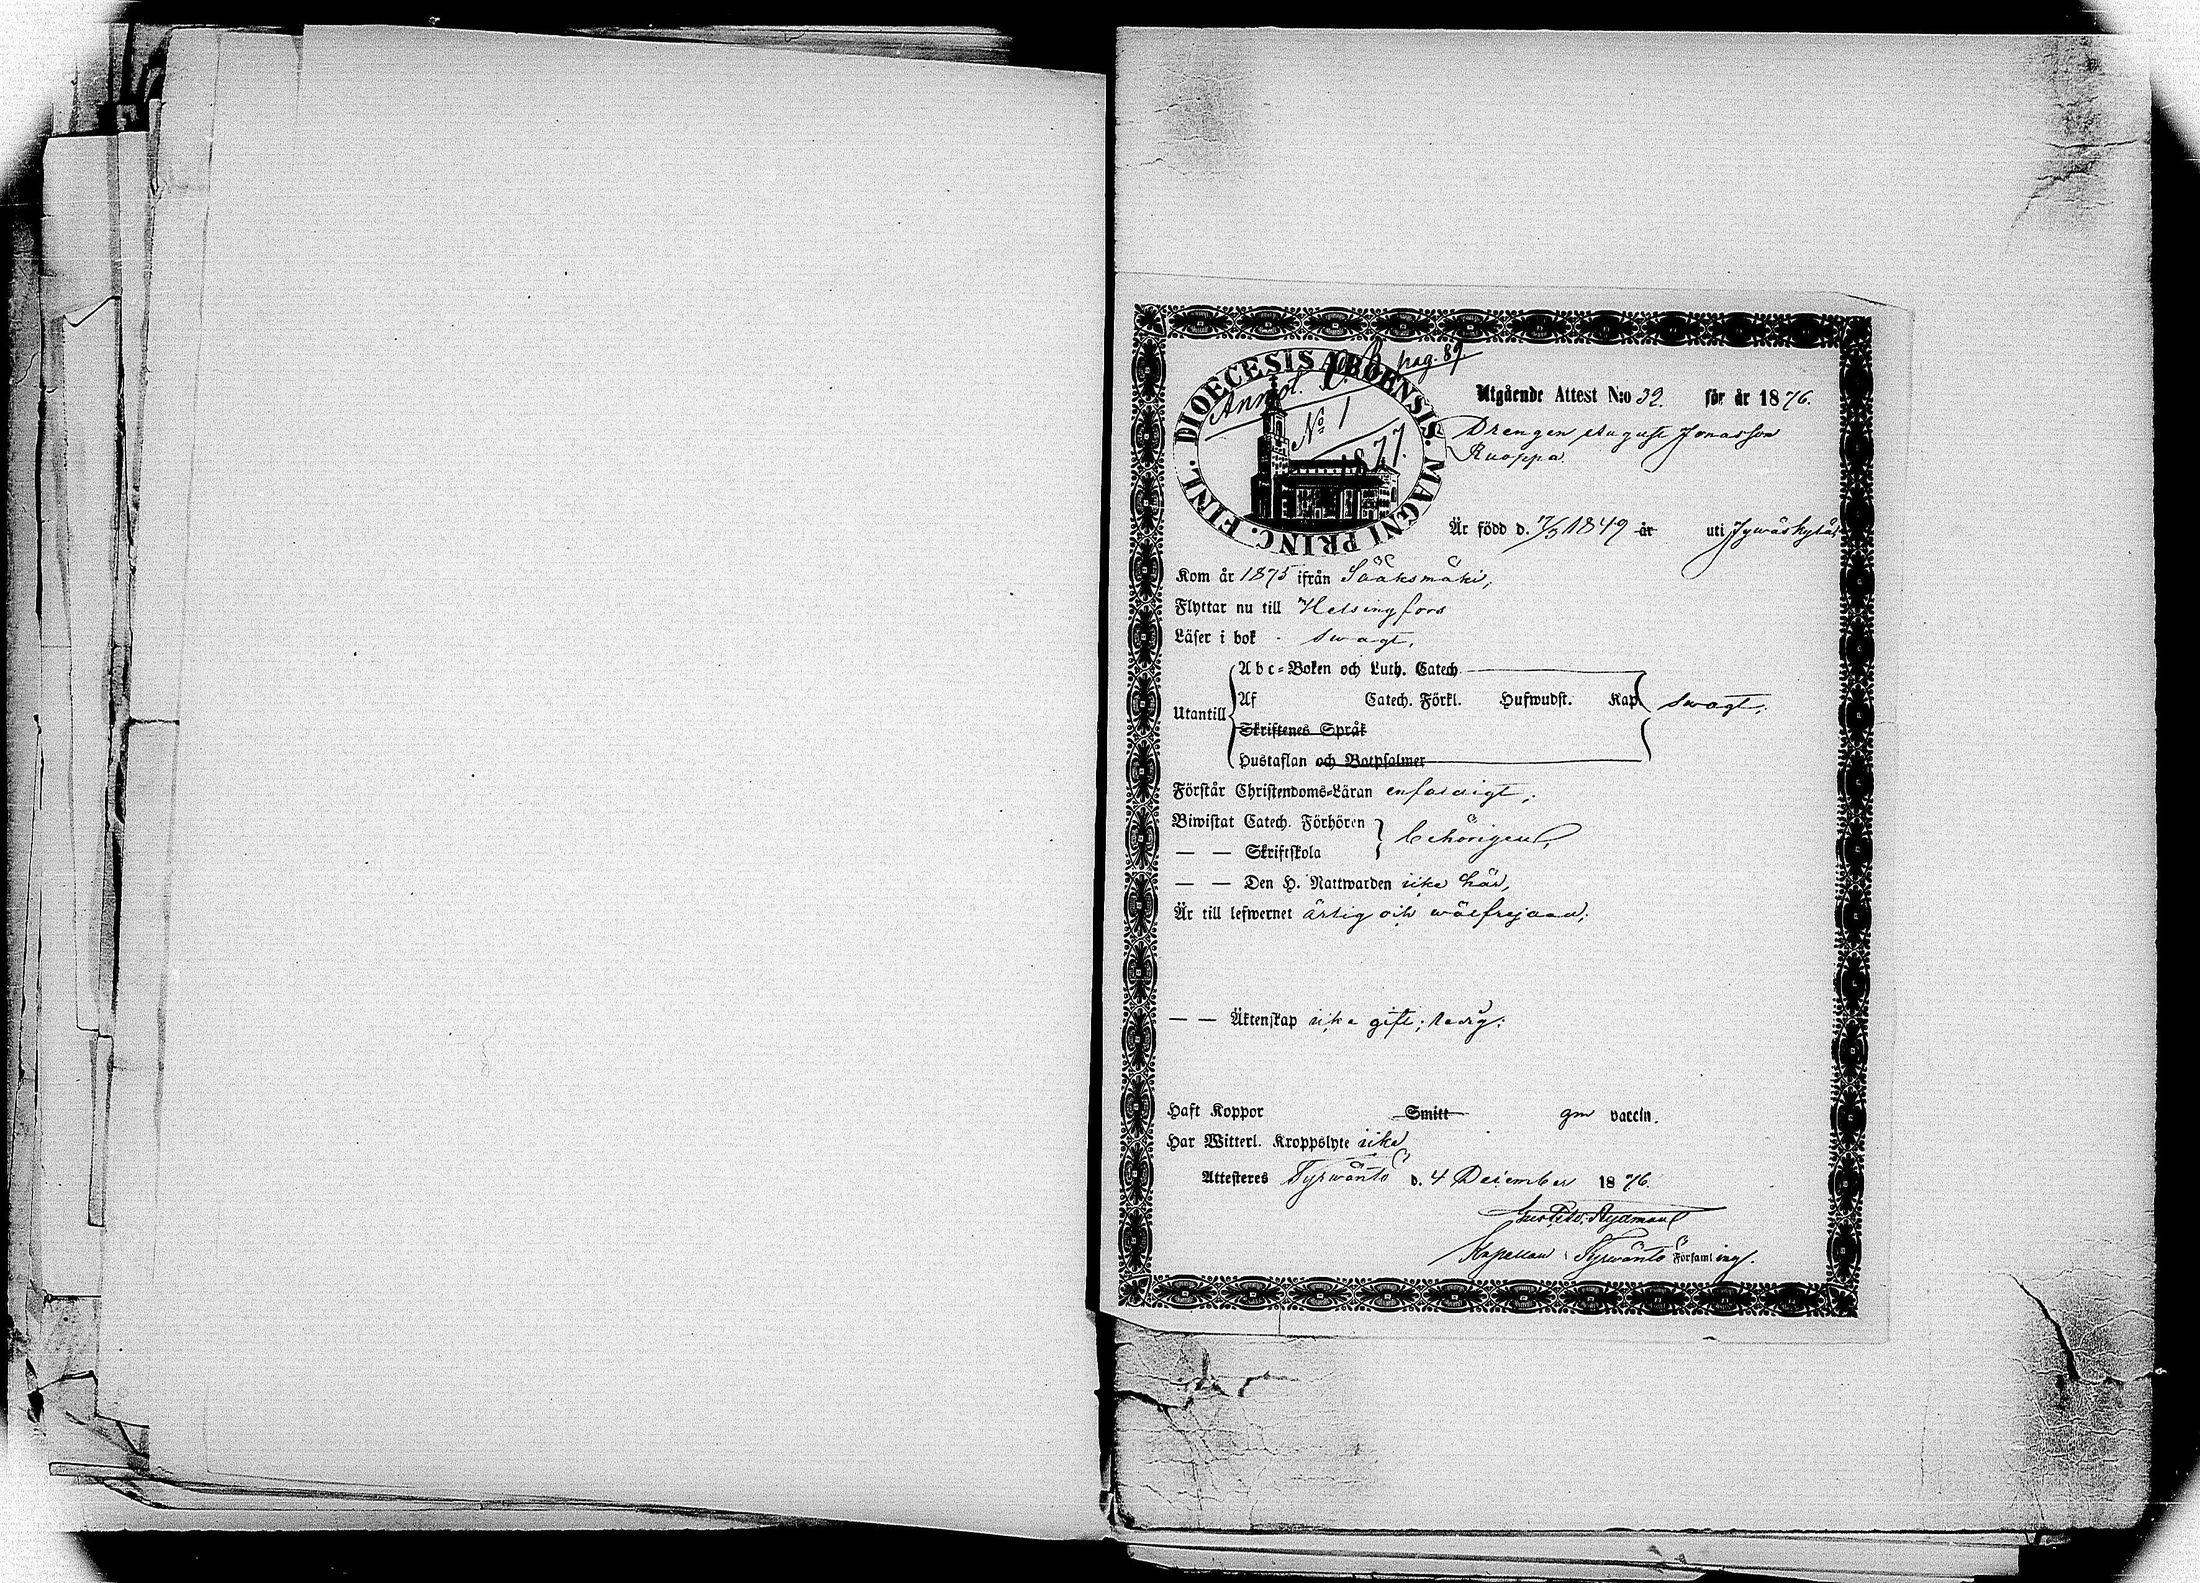 DIOECESIS ABOENSIS. MAGNI PRINC. FINL.
Annot. pag. 89
№ 1
1877.
Utgående Attest N:o 32. för år 1876.
Drengen August Jonasson
Ruoppa.
Är född d. 7/3 1849 år uti Jywäskylä
Kom år 1875 ifrån Sääksmäki,
Flyttar nu till Helsingfors
Läser i bok swagt,
Abc-Boken och Luth. Catech.
Utantill Af Catech. Förkl. Hufwudst. Kap swagt,
Skriftenes Språk
Hustaflan och Botpsalmer
Förstår Christendoms-Läran enfaldigt,
Biwistat Catech. Förhören
— — Skriftskola behörigen,
— — Den H. Nattwarden icke här,
Är till lefwernet ärlig och wälfrejdad,
— — Äktenskap icke gift; ledig.
Haft Koppor Smitt gm vaccin.
Har Witterl. Kroppslyte icke
Attesteres Tyrwäntö d. 4 December 1876.
Kapellan i Tyrwäntö Församlingl.